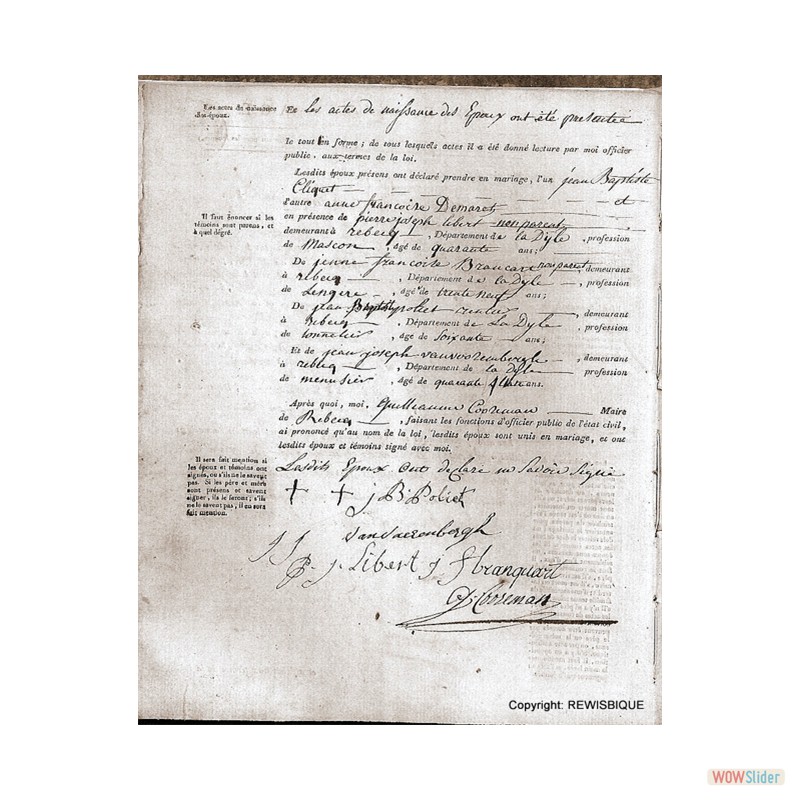 Les actes de naissance
des époux.
Et les actes de naissance des Epoux ont été presentée
le tout en forme ; de tous lesquels actes il a été donné lecture par moi officier
public, aux termes de la loi.
Lesdits époux présens ont déclaré prendre en mariage, l'un jean Baptiste
Cliquet et
d'autre anne francoire Demaret
Il faut énoncer si les
témoins sont parens, et
à quel dégré.
en présence de pierre joseph libert non parent
demeurant à rebecq , Département de la Dyle , profession
de Mascon , âgé de quarante ans ;
De jenne francoise Brancart non parent , demeurant
à rebecq , Département de la Dyle , profession
de , âgé de trente neuf ans ;
De jean Baptist poliet , demeurant
à rebecq , Département de La Dyle , profession
de tonnelier , âgé de soixante ans ;
Et de jean joseph vanvoorembergh , demeurant
à rebecq , Département de la dyle profession
de menusier , âgé de quarante ans.
Après quoi, moi, Guilleaume Cooreman Maire
de Rebecq , faisant les fonctions d'officier public de l'état civil,
ai prononcé qu'au nom de la loi, lesdits époux sont unis en mariage, et ont
lesdits époux et témoins signé avec moi.
Il sera fait mention si
les époux et témoins ont
signés, ou s'ils ne le savent
pas. Si les père et mère
sont présens et savent
signer, ils le feront ; s'ils
ne le savent pas, il en sera
fait mention.
Lesdits Epoux ont declare ne Savoir Signé
j B: Poliet
vanvaerenbergh
P. j. Libert j f branquart
G: Cooreman
Copyright: REWISBIQUE
WOWSlider